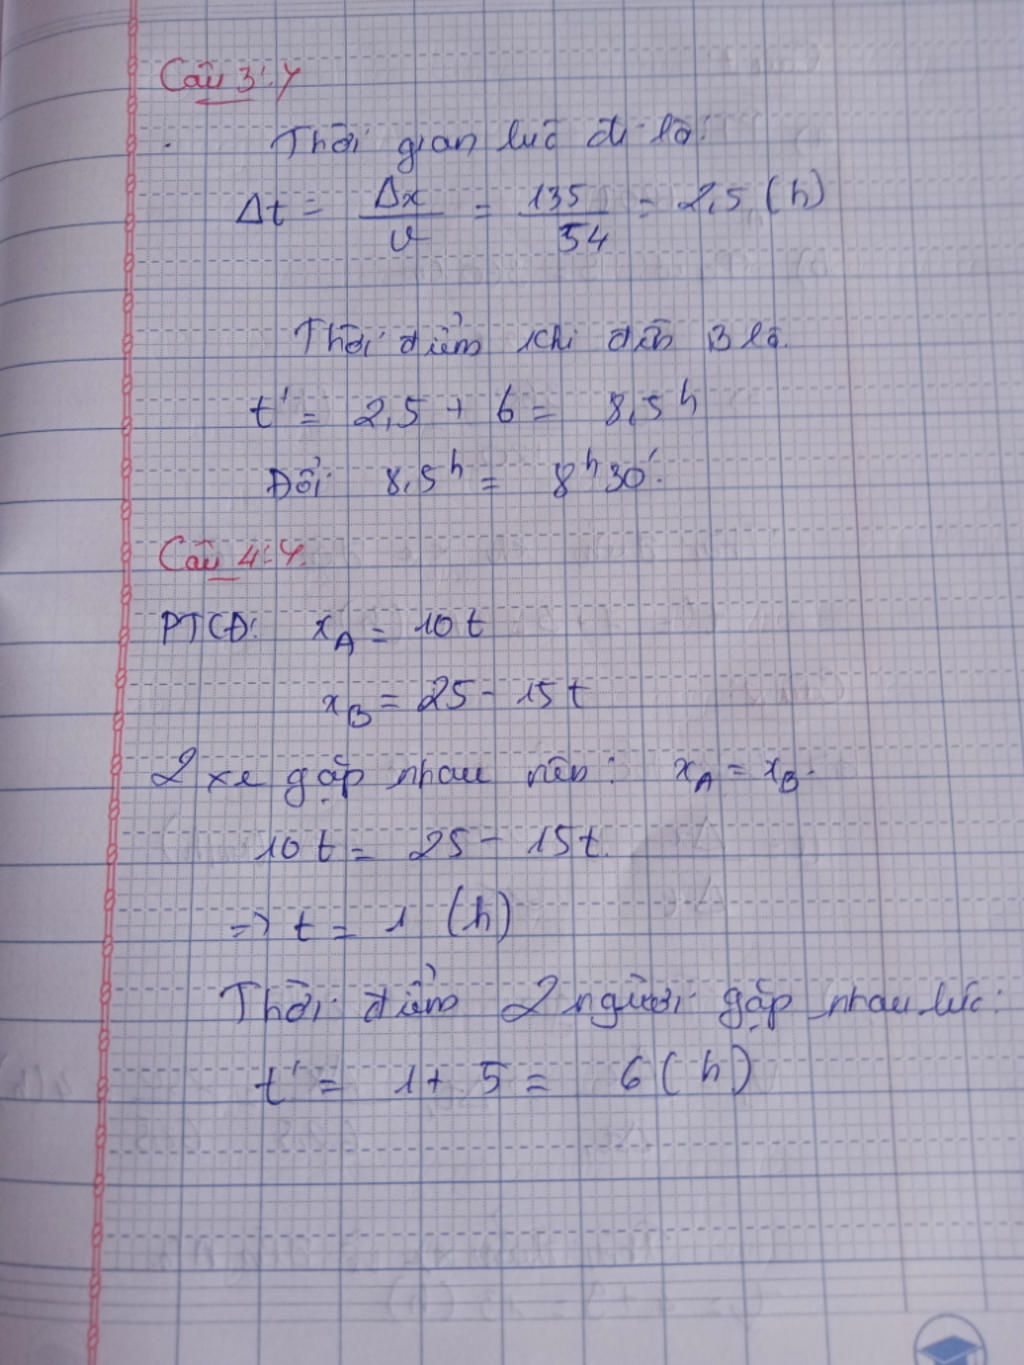 Câu 3: Y
Thời gian lúc đi là:
Δt = Δx/v = 135/54 = 2,5 (h)
Thời điểm khi đến B là.
t' = 2,5 + 6 = 8,5h
Đổi 8,5h = 8h30'.
Câu 4: Y.
PTCĐ: xA = 10t
xB = 25 - 15t
2 xe gặp nhau nên: xA = xB.
10t = 25 - 15t.
=> t = 1 (h)
Thời điểm 2 người gặp nhau lúc:
t' = 1 + 5 = 6 (h)